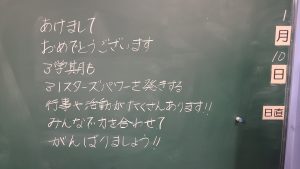 あけまして
おめでとうございます
3学期も
マスターズパワーを発きする
行事や活動がたくさんあります!!
みんなで力を合わせて
がんばりましょう!!
1
月
10
日
日直